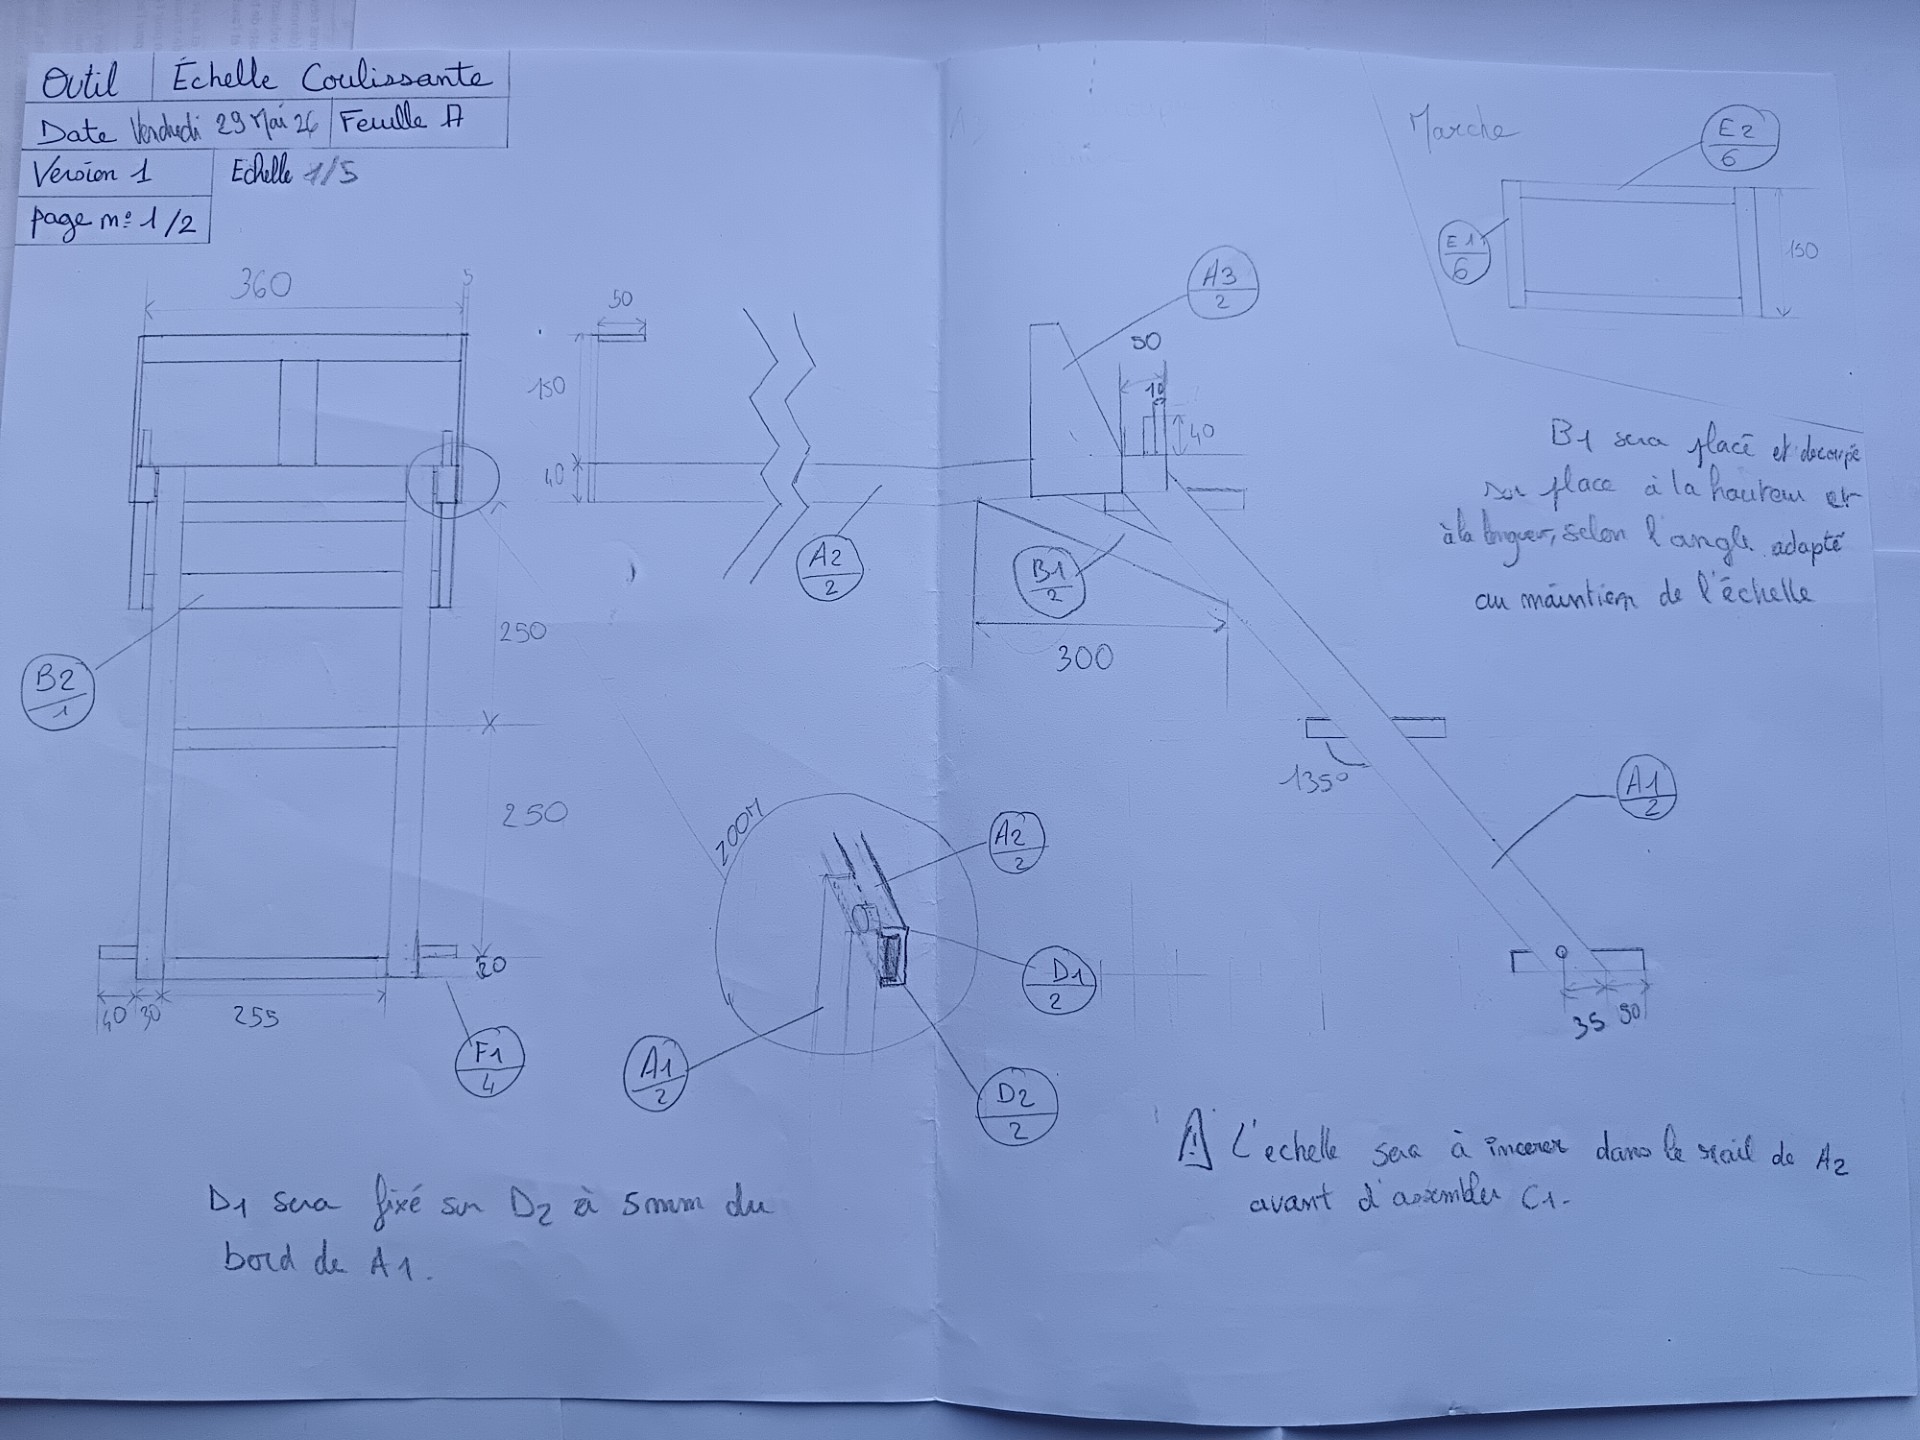 Outil Échelle Coulissante
Date Vendredi 29 Mai 26 Feuille A
Version 1 Echelle 1/5
page n° 1/2
Marche
E2
6
E1
6
150
A3
2
360
5
50
50
10
40
150
40
A2
2
B1
2
300
B1 sera placé et decoupé
sur place à la hauteur et
à la longuer, selon l'angle adapté
au maintien de l'échelle
B2
1
250
250
20
40 30 255
F1
4
135°
A1
2
35 50
ZOOM
A2
2
D1
2
A1
2
D2
2
D1 sera fixé sur D2 à 5mm du
bord de A1.
L'echelle sera à incerer dans le rail de A2
avant d'assembler C1.